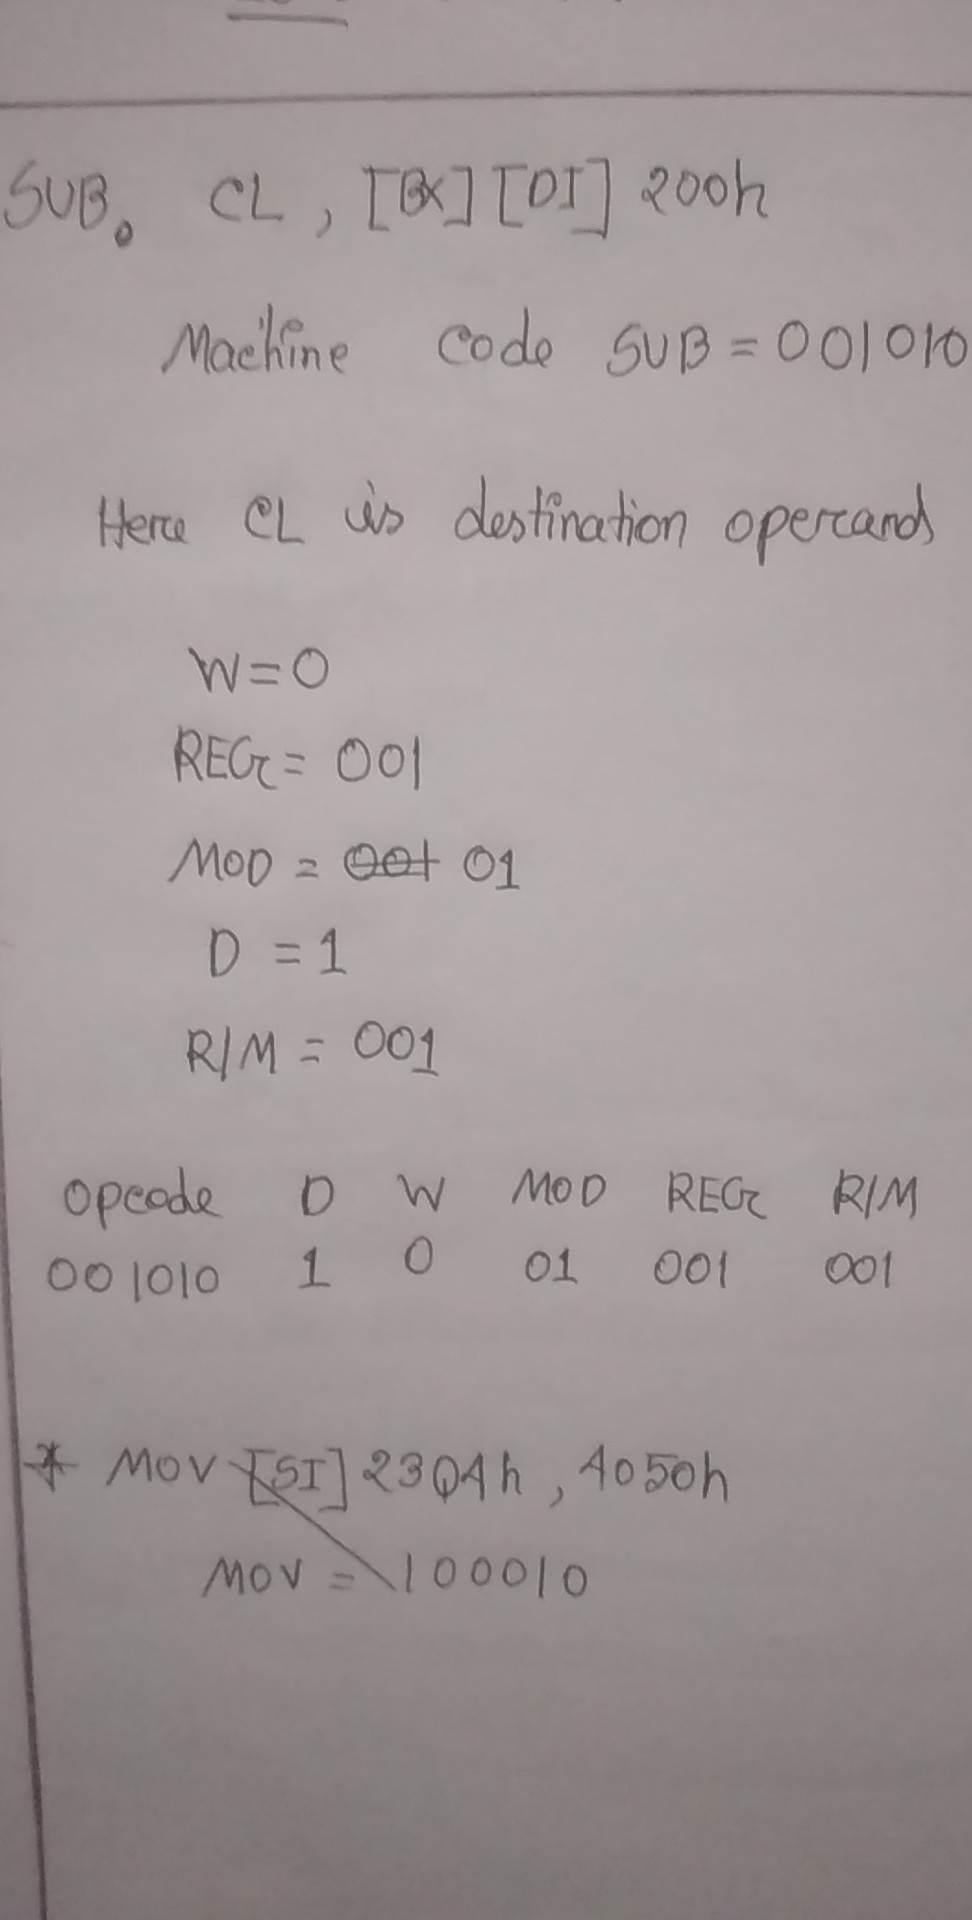 SUB. CL, [BX] [DI] 200h
Machine code SUB = 001010
Here CL is destination operand
W = 0
REG = 001
MOD = 001 01
D = 1
R/M = 001
opcode D W MOD REG R/M
001010 1 0 01 001 001
* MOV [SI] 2304h, 4050h
MOV = 100010